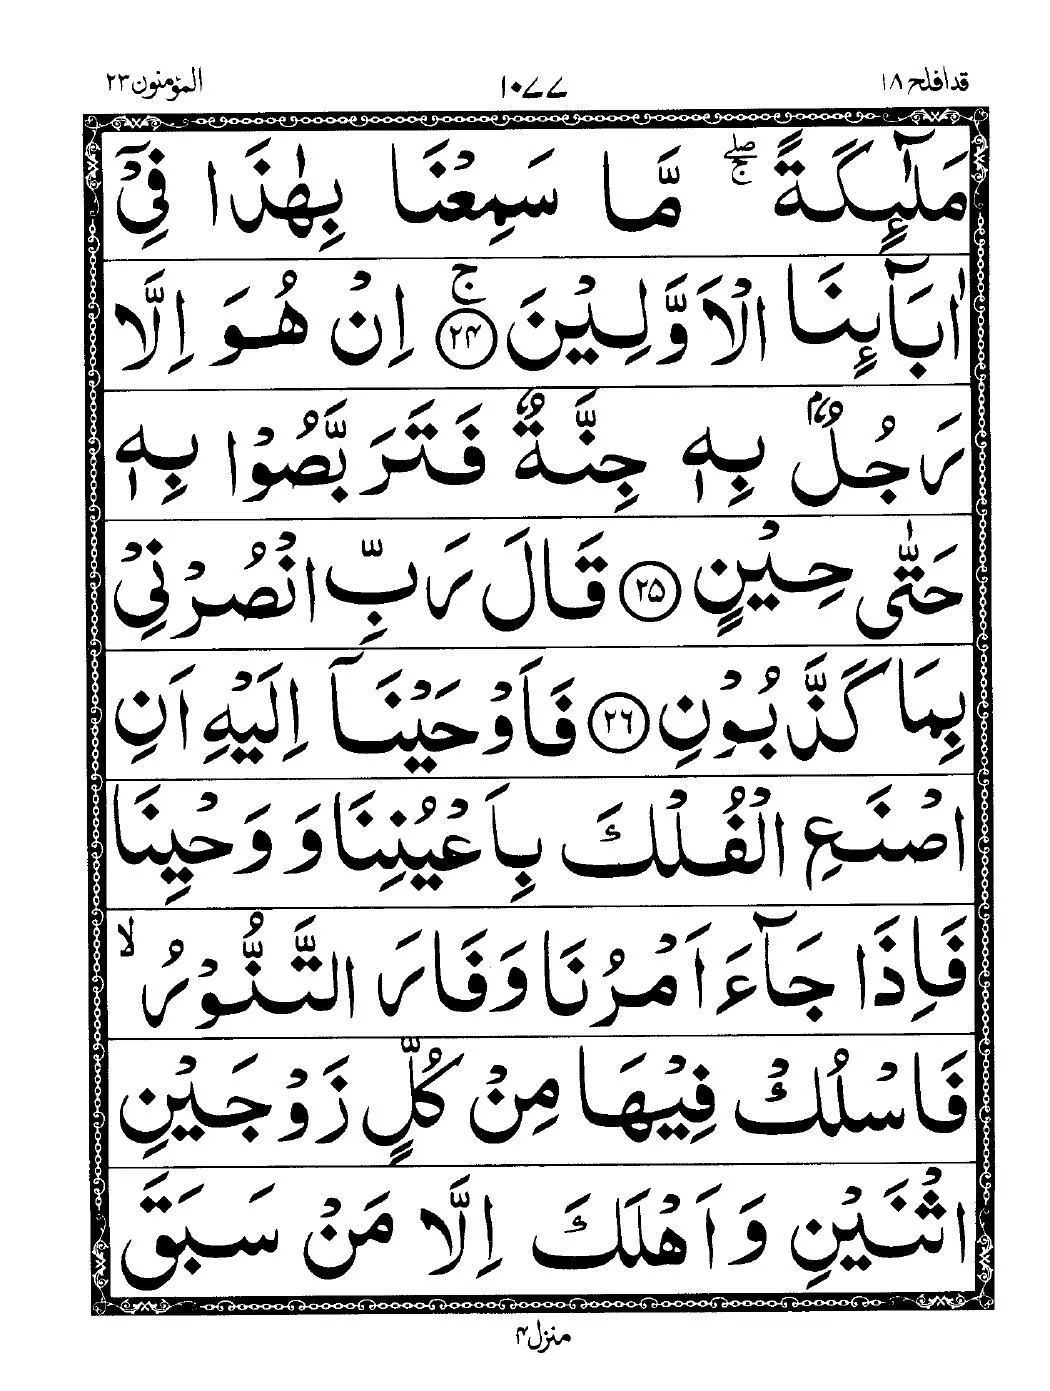 قد افلح ۱۸
۱۰۷۷
المؤمنون ۲۳
مَلٰٓئِكَةً ۖۚ مَّا سَمِعْنَا بِهٰذَا فِیْۤ
اٰبَآئِنَا الْاَوَّلِیْنَ ﴿۲۴﴾ۚ اِنْ هُوَ اِلَّا
رَجُلٌۢ بِهٖ جِنَّةٌ فَتَرَبَّصُوْا بِهٖ
حَتّٰی حِیْنٍ ﴿۲۵﴾ قَالَ رَبِّ انْصُرْنِیْ
بِمَا كَذَّبُوْنِ ﴿۲۶﴾ فَاَوْحَیْنَاۤ اِلَیْهِ اَنِ
اصْنَعِ الْفُلْكَ بِاَعْیُنِنَا وَ وَحْیِنَا
فَاِذَا جَآءَ اَمْرُنَا وَ فَارَ التَّنُّوْرُ ۙ
فَاسْلُكْ فِیْهَا مِنْ كُلٍّ زَوْجَیْنِ
اثْنَیْنِ وَ اَهْلَكَ اِلَّا مَنْ سَبَقَ
منزل ۴